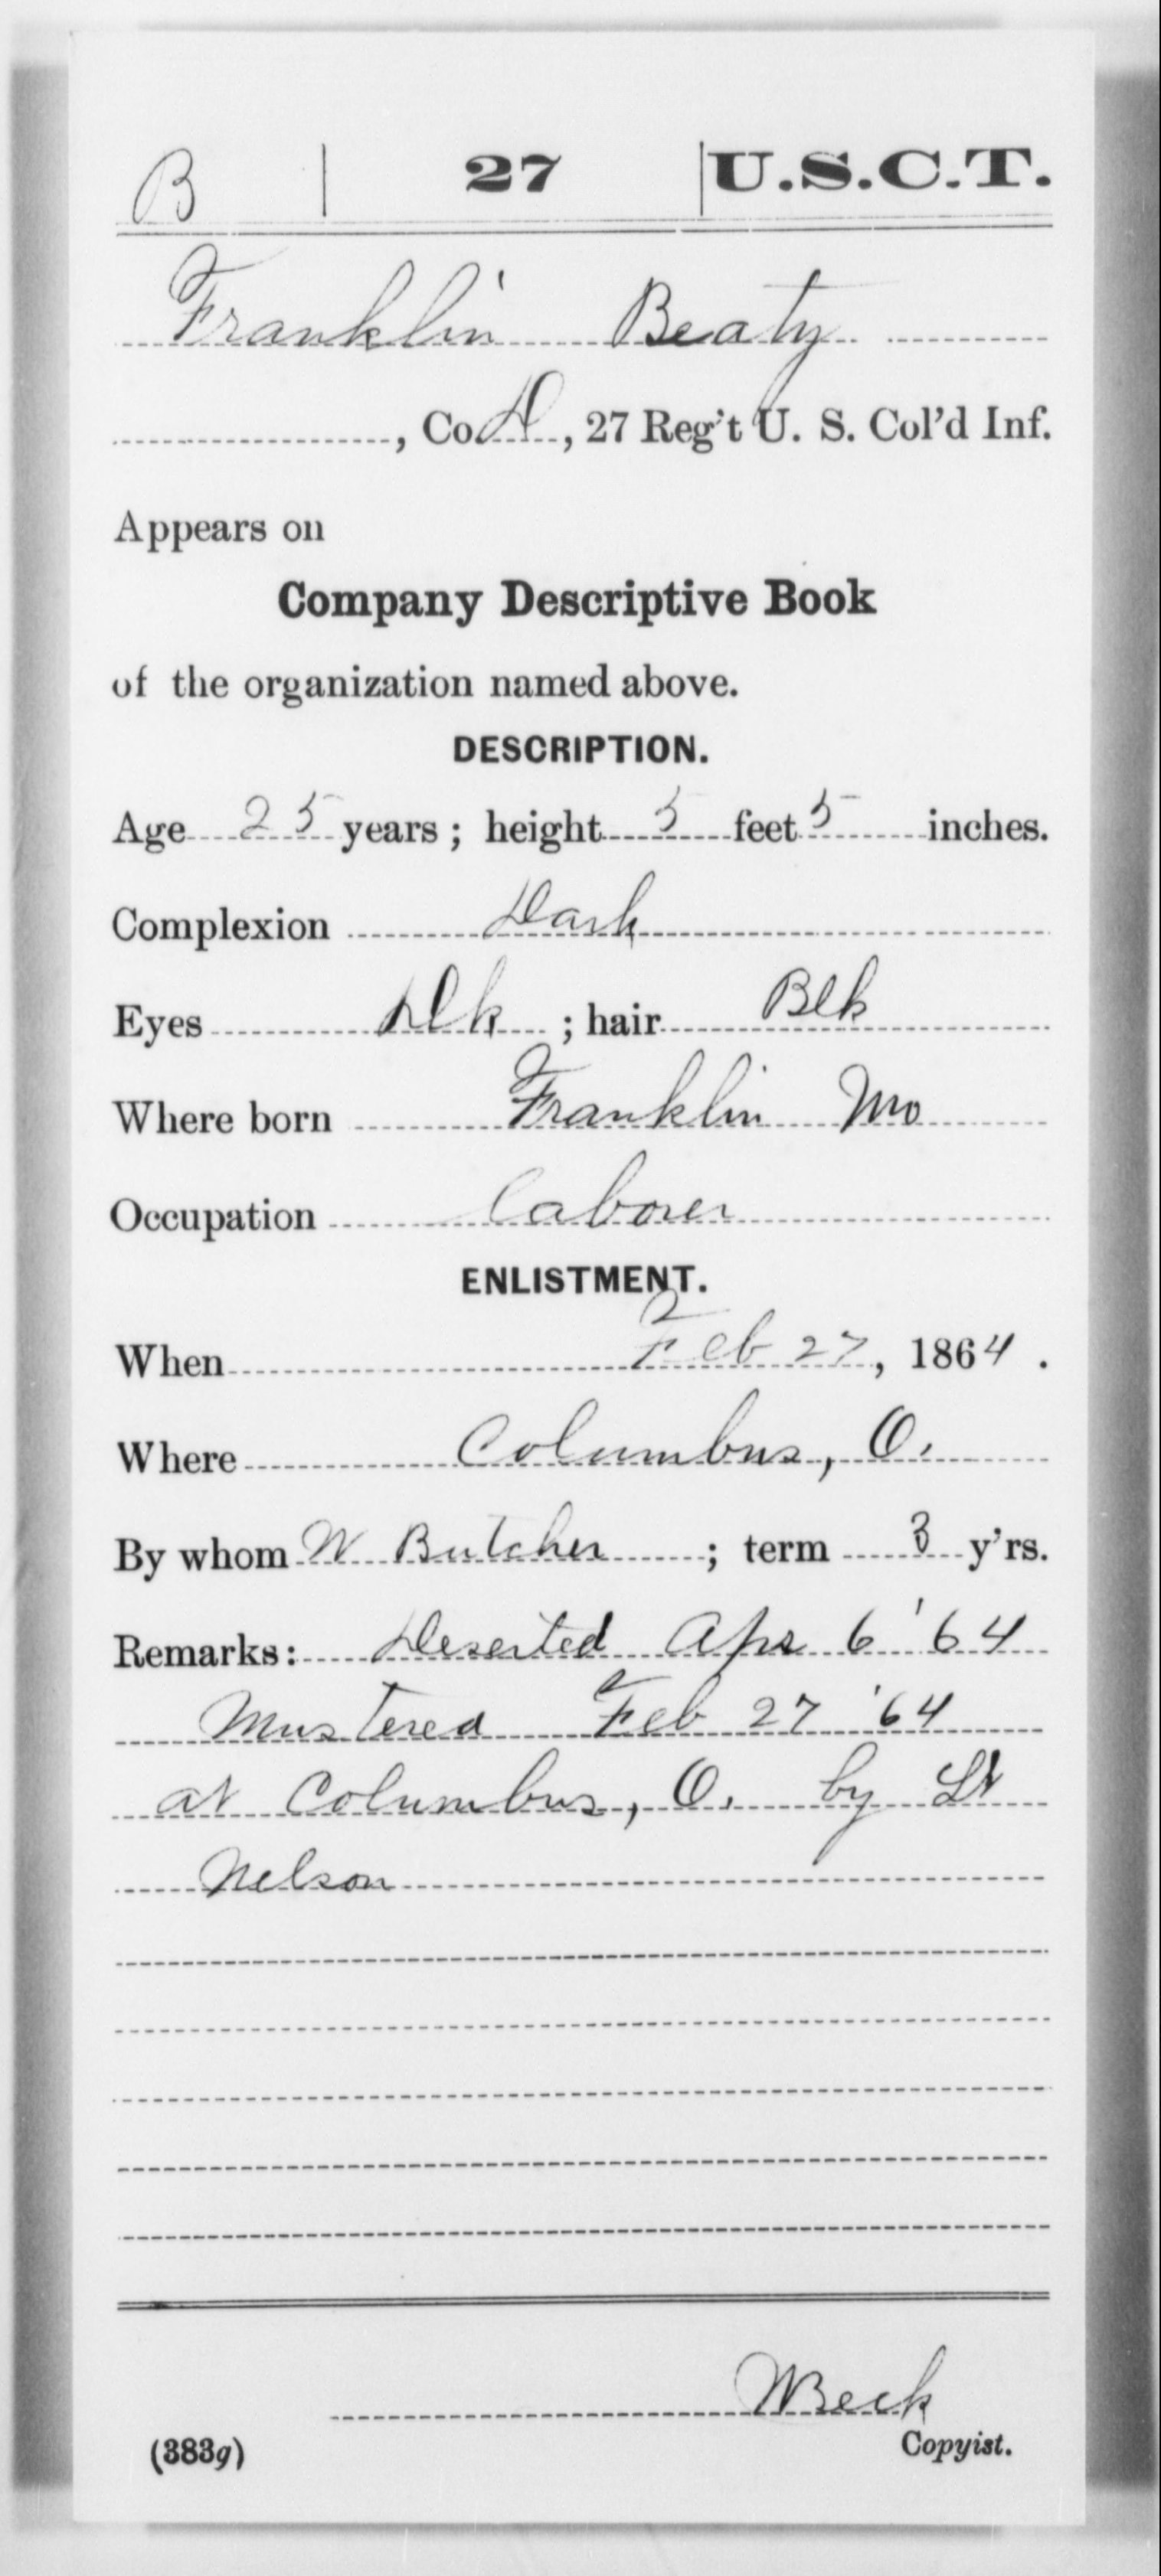 B | 27 | U.S.C.T.
Franklin Beaty
, Co. D, 27 Reg't U. S. Col'd Inf.
Appears on
Company Descriptive Book
of the organization named above.
DESCRIPTION.
Age 25 years; height 5 feet 5 inches.
Complexion Dark
Eyes Dk ; hair Blk
Where born Franklin Mo
Occupation Laborer
ENLISTMENT.
When Feb 27, 1864.
Where Columbus, O.
By whom W Butcher ; term 3 y'rs.
Remarks: Deserted Apr 6 '64
Mustered Feb 27 '64
at Columbus, O. by Lt
Nelson
WBeck
(383g) Copyist.